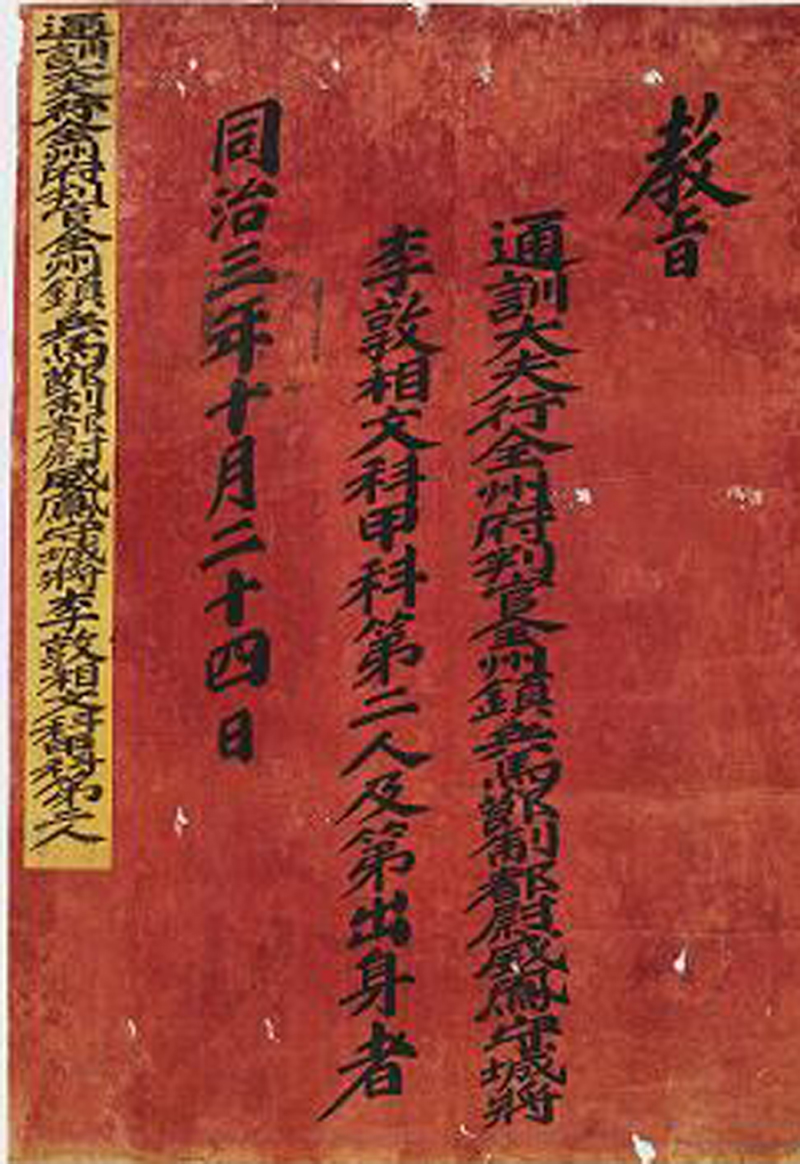 教旨
通訓大夫行全州府判官全州鎮兵馬節制都尉威鳳守城將
李敦相文科甲科第二人及第出身者
同治三年十月二十四日
通訓大夫行全州府判官全州鎮兵馬節制都尉威鳳守城將李敦相文科甲科第二人